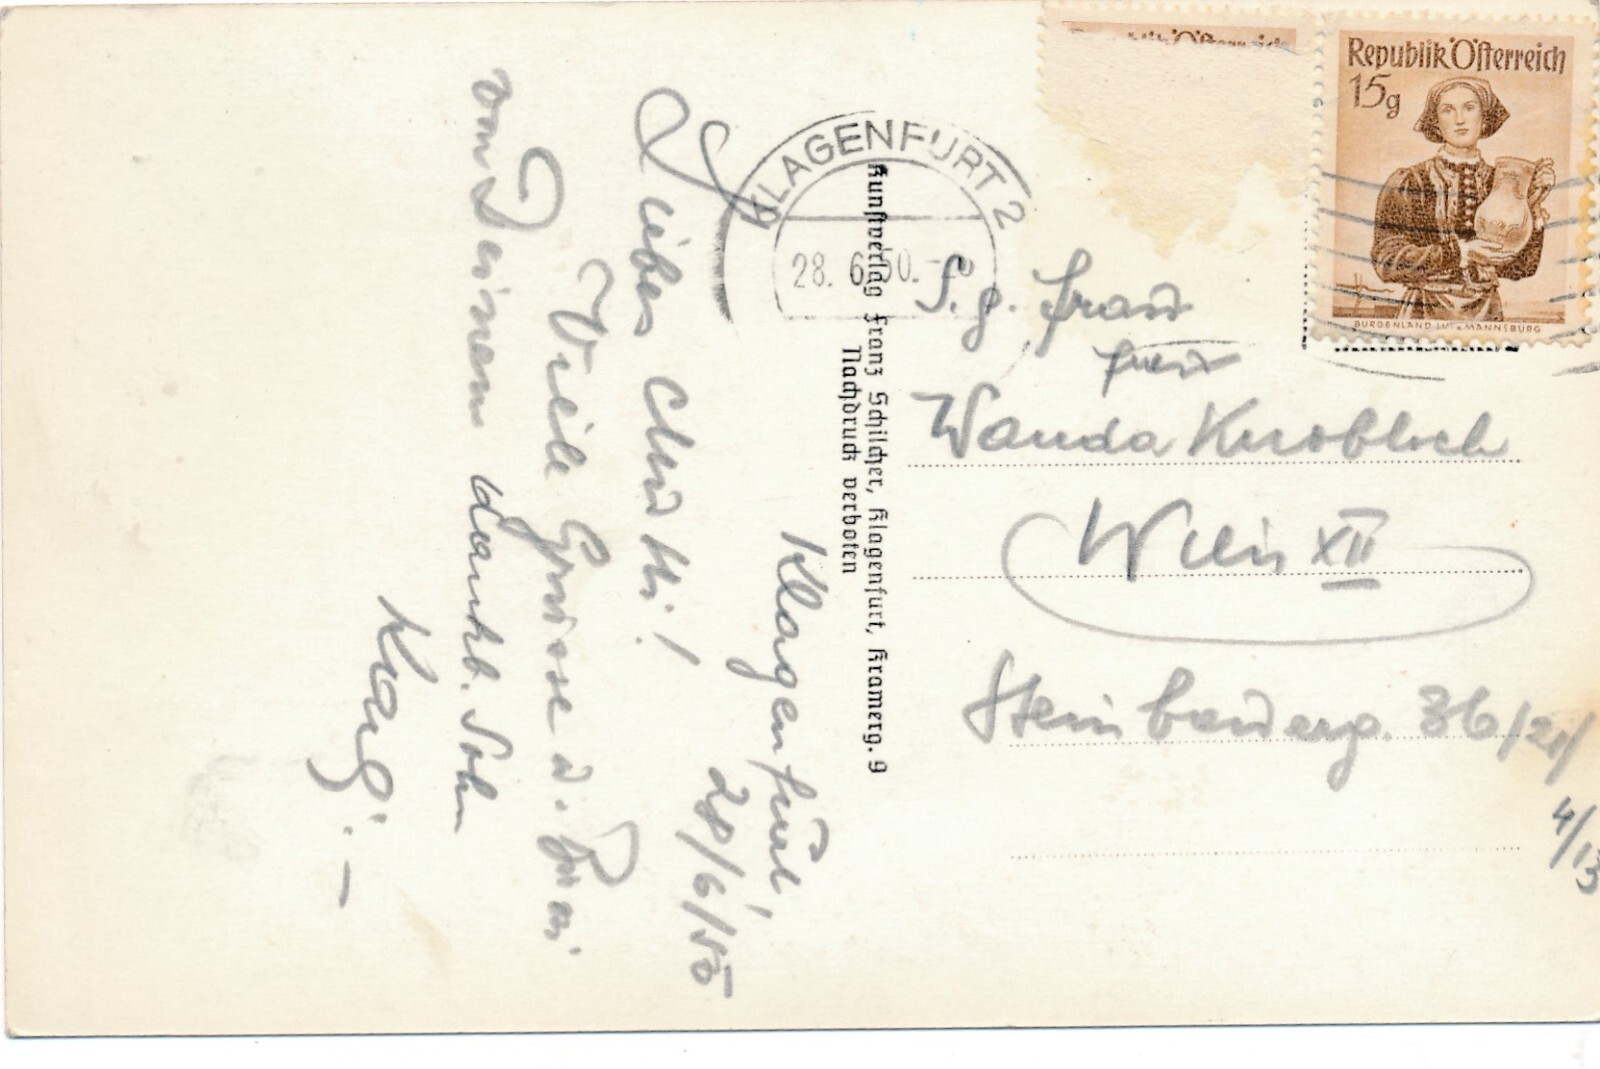 Klagenfurt,
28/6/50
Liebes Mutti!
Viele Grüsse u. Bussi
von Deinem dankb. Sohn
Republik Österreich
Republik Österreich
15g
BURGENLAND LUTZMANNSBURG
KLAGENFURT 2
28. 6. 50.
Kunstverlag Franz Schilcher, Klagenfurt, Kramerg. 9
Nachdruck verboten
S. g. Frau
Frau
Wanda Knobloch
Wien XII
Steinbauerg. 36/21/
4/13